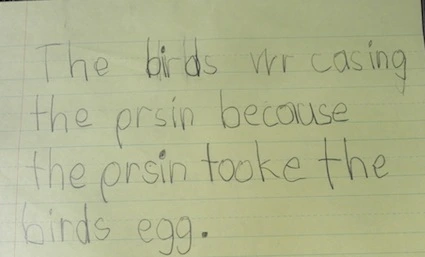 The birds vrr casing
the prsin because
the prsin tooke the
birds egg.